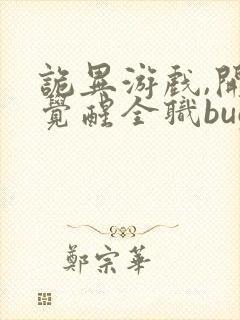 詭異游戲,開
覺醒全職bu
鄭宗華